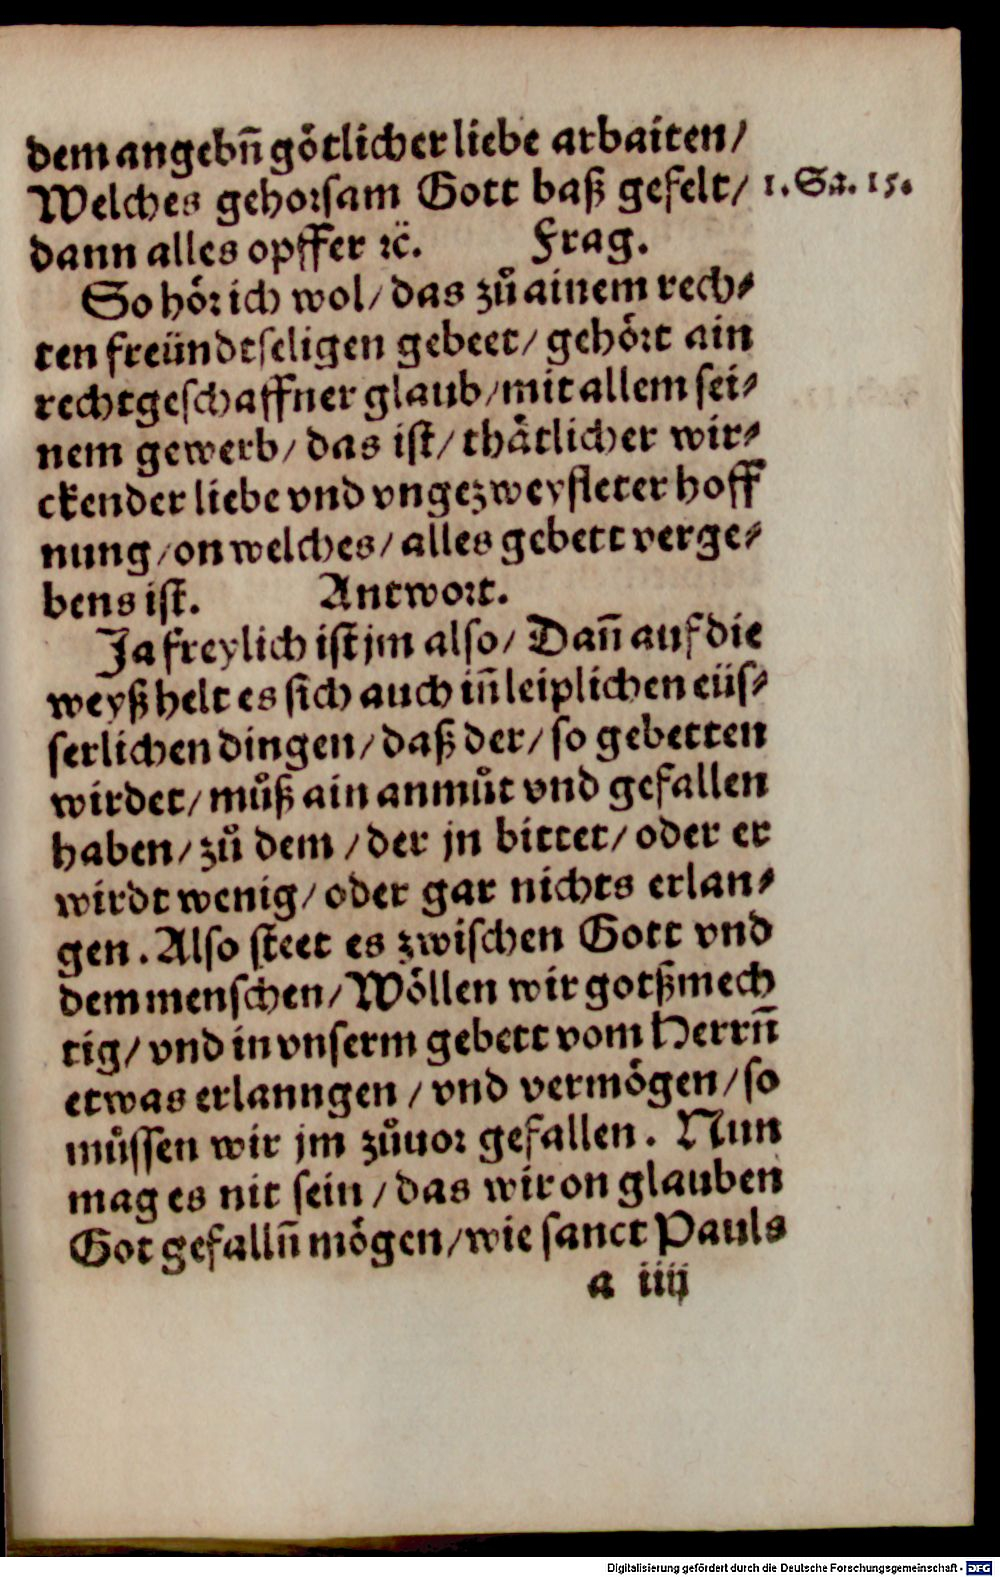 dem angebn̄ götlicher liebe arbaiten/
Welches gehorsam Gott baß gefelt/ 1. Sa. 15.
dann alles opffer ꝛc̄. Frag.
So hör ich wol/ das zů ainem rech⸗
ten freündtseligen gebeet/ gehört ain
rechtgeschaffner glaub/ mit allem sei⸗
nem gewerb/ das ist/ thätlicher wir⸗
ckender liebe vnd vngezweyfleter hoff
nung/ on welches/ alles gebett verge⸗
bens ist. Antwort.
Ja freylich ist jm also/ Dan̄ auf die
weyß helt es sich auch in̄ leiplichen eüs⸗
serlichen dingen/ daß der/ so gebetten
wirdet/ můß ain anmůt vnd gefallen
haben/ zů dem/ der jn bittet/ oder er
wirdt wenig/ oder gar nichts erlan⸗
gen. Also steet es zwischen Gott vnd
dem menschen/ Wöllen wir gotßmech
tig/ vnd in vnserm gebett vom Herrn̄
etwas erlanngen/ vnd vermögen/ so
můssen wir jm zůuor gefallen. Nun
mag es nit sein/ das wir on glauben
Got gefalln̄ mögen/ wie sanct Pauls
a iiij
Digitalisierung gefördert durch die Deutsche Forschungsgemeinschaft - DFG